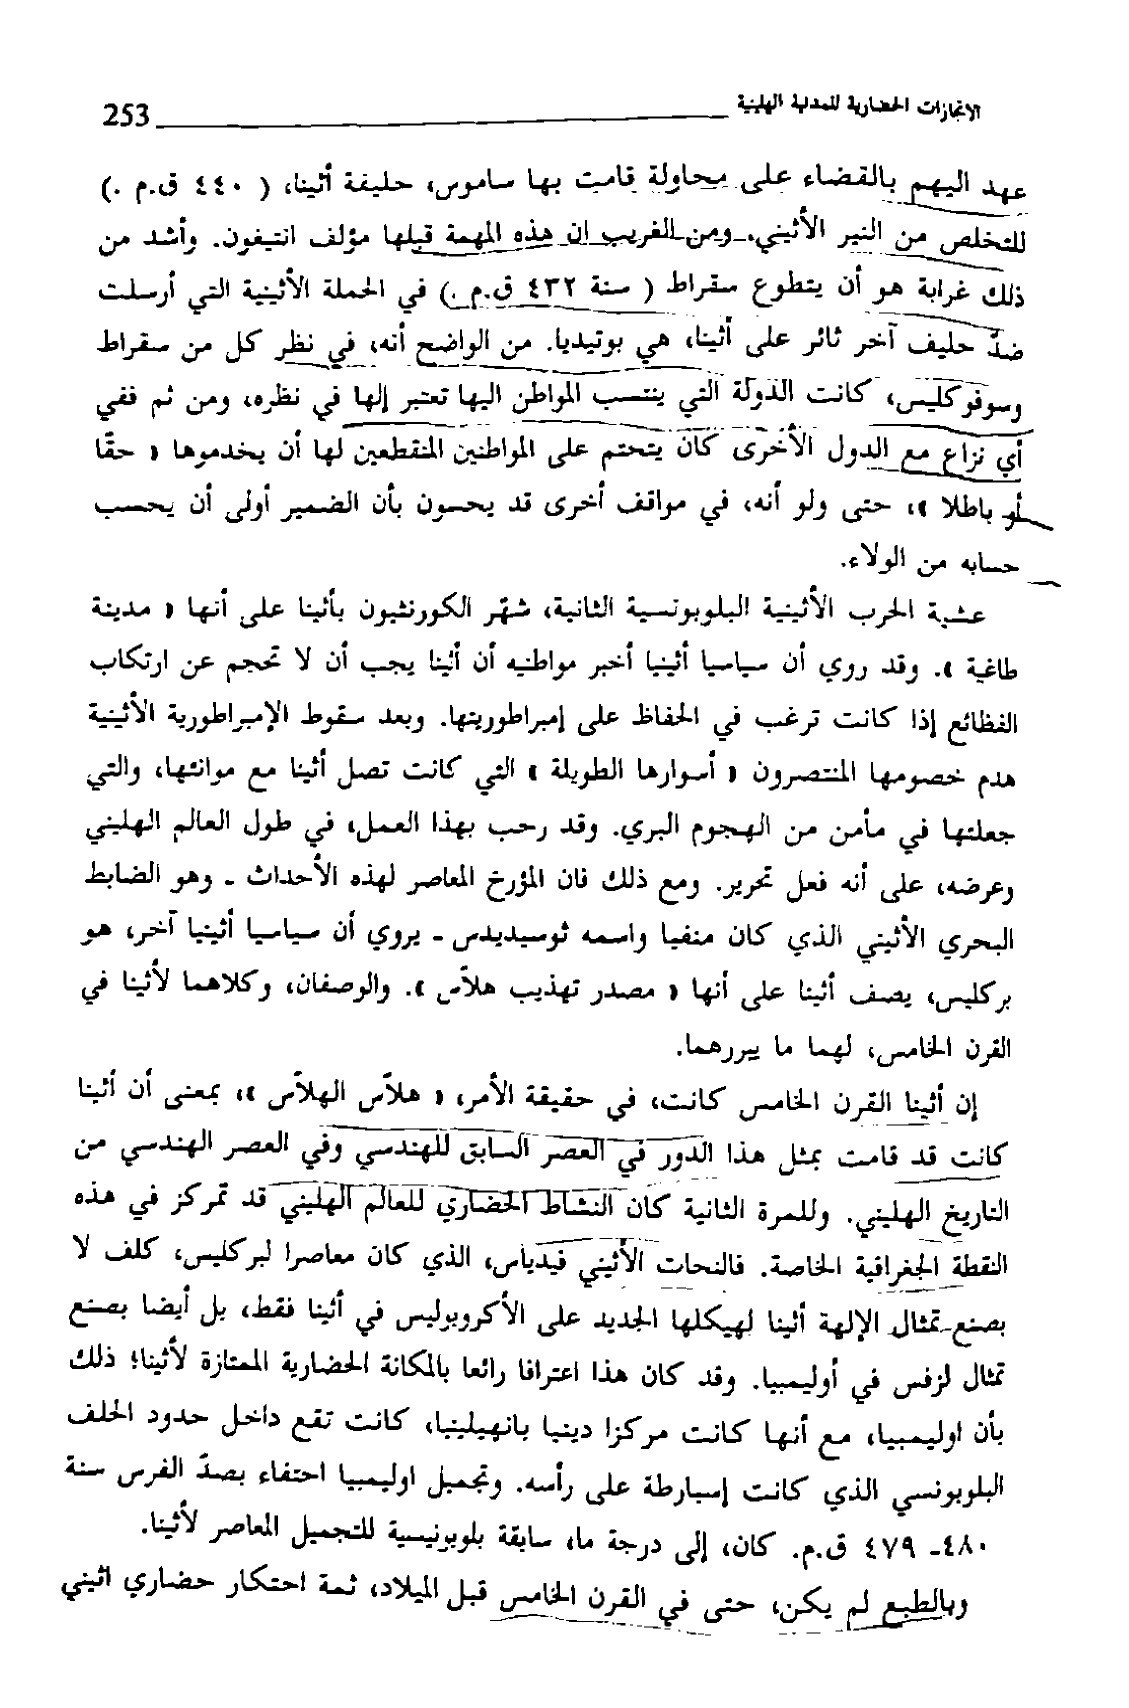 الانجازات الحضارية للمدنية الهلينية 253
عهد اليهم بالقضاء على محاولة قامت بها ساموس، حليفة أثينا، ( ٤٤٠ ق.م .)
للتخلص من النير الأثيني. ومن الغريب ان هذه المهمة قبلها مؤلف انتيغون. وأشد من
ذلك غرابة هو أن يتطوع سقراط ( سنة ٤٣٢ ق.م .) في الحملة الأثينية التي أرسلت
ضدّ حليف آخر ثائر على أثينا، هي بوتيديا. من الواضح أنه، في نظر كل من سقراط
وسوفوكليس، كانت الدولة التي ينتسب المواطن اليها تعتبر إلها في نظره، ومن ثم ففي
أي نزاع مع الدول الأخرى كان يتحتم على المواطنين المنقطعين لها أن يخدموها « حقّا
أو باطلا »، حتى ولو أنه، في مواقف أخرى قد يحسون بأن الضمير أولى أن يحسب
حسابه من الولاء.
عشية الحرب الأثينية البلوبونسية الثانية، شهّر الكورنثيون بأثينا على أنها « مدينة
طاغية ». وقد روي أن سياسيا أثينيا أخبر مواطنيه أن أثينا يجب أن لا تحجم عن ارتكاب
الفظائع إذا كانت ترغب في الحفاظ على إمبراطوريتها. وبعد سقوط الإمبراطورية الأثينية
هدم خصومها المنتصرون « أسوارها الطويلة » التي كانت تصل أثينا مع موانئها، والتي
جعلتها في مأمن من الهجوم البري. وقد رحب بهذا العمل، في طول العالم الهليني
وعرضه، على أنه فعل تحرير. ومع ذلك فان المؤرخ المعاصر لهذه الأحداث ـ وهو الضابط
البحري الأثيني الذي كان منفيا واسمه ثوسيديدس ـ يروي أن سياسيا أثينيا آخر، هو
بركليس، يصف أثينا على أنها « مصدر تهذيب هلاّس ». والوصفان، وكلاهما لأثينا في
القرن الخامس، لهما ما يبررهما.
إن أثينا القرن الخامس كانت، في حقيقة الأمر، « هلاّس الهلاّس »، بمعنى أن أثينا
كانت قد قامت بمثل هذا الدور في العصر السابق للهندسي وفي العصر الهندسي من
التاريخ الهليني. وللمرة الثانية كان النشاط الحضاري للعالم الهليني قد تمركز في هذه
النقطة الجغرافية الخاصة. فالنحات الأثيني فيدياس، الذي كان معاصرا لبركليس، كلف لا
بصنع تمثال الإلهة أثينا لهيكلها الجديد على الأكروبوليس في أثينا فقط، بل أيضا بصنع
تمثال لزفس في أوليمبيا. وقد كان هذا اعترافا رائعا بالمكانة الحضارية الممتازة لأثينا؛ ذلك
بأن اوليمبيا، مع أنها كانت مركزا دينيا بانهيلينيا، كانت تقع داخل حدود الحلف
البلوبونسي الذي كانت إسبارطة على رأسه. وتجميل اوليمبيا احتفاء بصدّ الفرس سنة
٤٨٠ـ ٤٧٩ ق.م. كان، إلى درجة ما، سابقة بلوبونيسية للتجميل المعاصر لأثينا.
وبالطبع لم يكن، حتى في القرن الخامس قبل الميلاد، ثمة احتكار حضاري اثيني